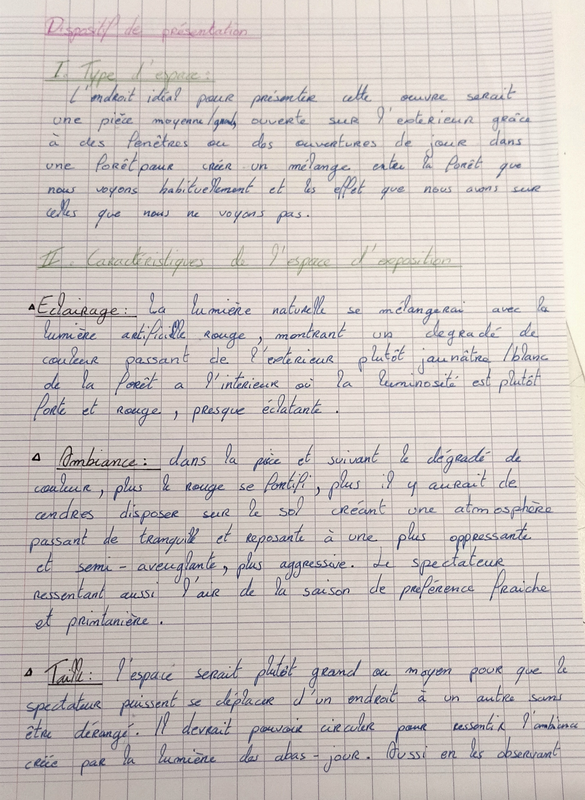 Dispositif de présentation
I. Type d'espace :
L'endroit idéal pour présenter cette oeuvre serait
une pièce moyenne/grande, ouverte sur l'extérieur grâce
à des fenêtres ou des ouvertures de jour dans
une forêt pour créer un mélange entre la forêt que
nous voyons habituellement et les effet que nous avons sur
celles que nous ne voyons pas.
II. Caractéristiques de l'espace d'exposition
Eclairage : La lumière naturelle se mélangerai avec la
lumière artificielle rouge, montrant un degradé de
couleur passant de l'extérieur plutôt jaunâtre/blanc
de la forêt a l'intérieur où la luminosité est plutôt
forte et rouge, presque éclatante.
Ambiance : dans la pièce et suivant le dégradé de
couleur, plus le rouge se fortifi, plus il y aurait de
cendres disposer sur le sol créant une atmosphère
passant de tranquille et reposante à une plus oppressante
et semi-aveuglante, plus aggressive. Le spectateur
ressentant aussi l'air de la saison de preférence fraiche
et printanière.
Taille : l'espace serait plutôt grand ou moyen pour que le
spectateur puissent se déplacer d'un endroit à un autre sans
être dérangé. Il devrait pouvoir circuler pour ressentir l'ambiance
créée par la lumière des abas-jour. Aussi en les observant